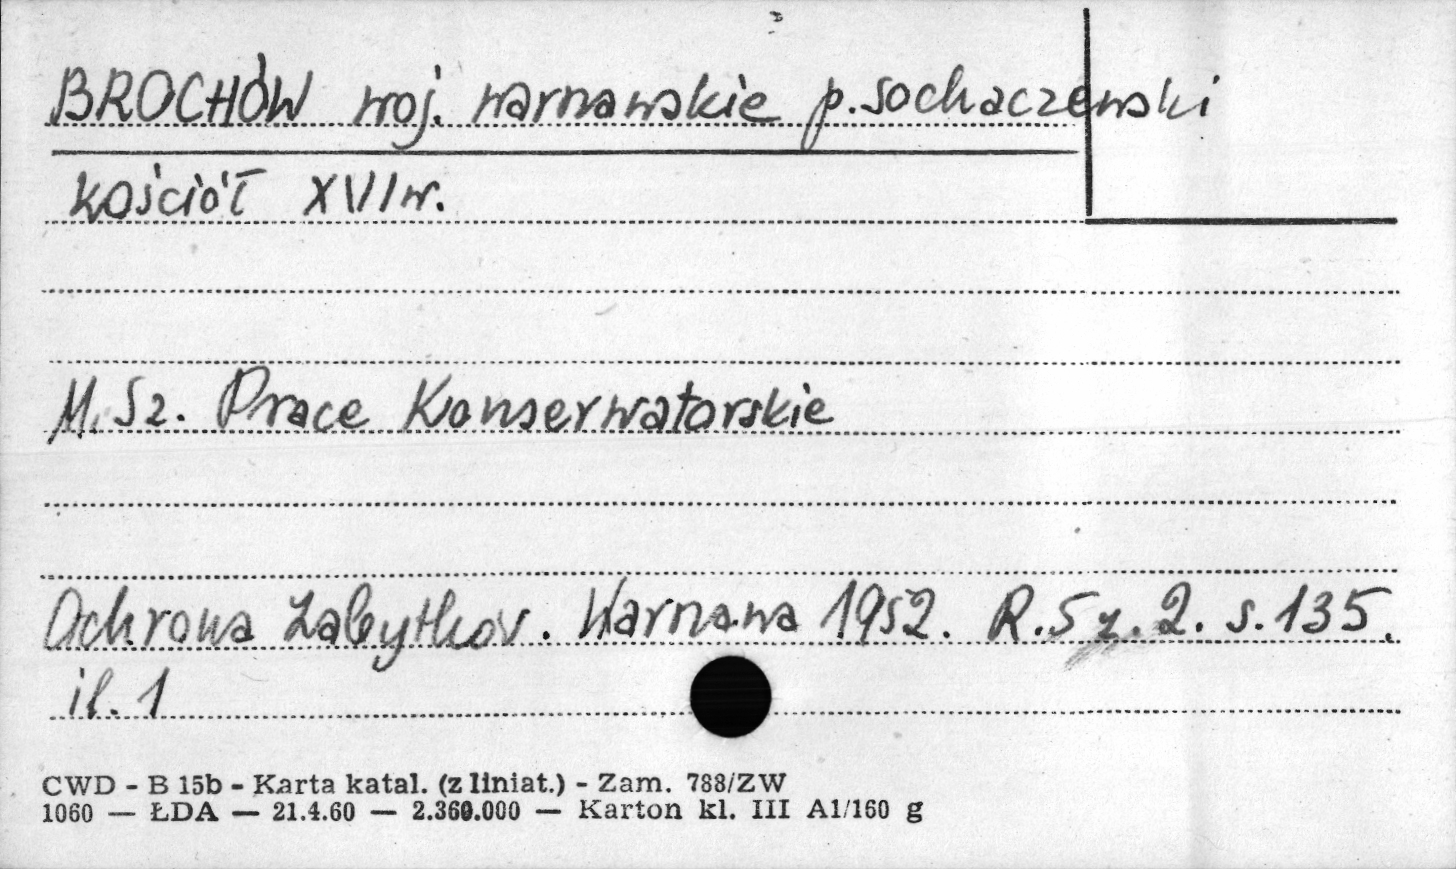 BROCHÓW woj. warszawskie p. sochaczewski
kościół XVII w.
M. Sz. Prace Konserwatorskie
Ochrona Zabytków. Warszawa 1952. R. 5 z. 2. s. 135.
il. 1
CWD - B 15b - Karta katal. (z liniat.) - Zam. 788/ZW
1060 — ŁDA — 21.4.60 — 2.360.000 — Karton kl. III A1/160 g